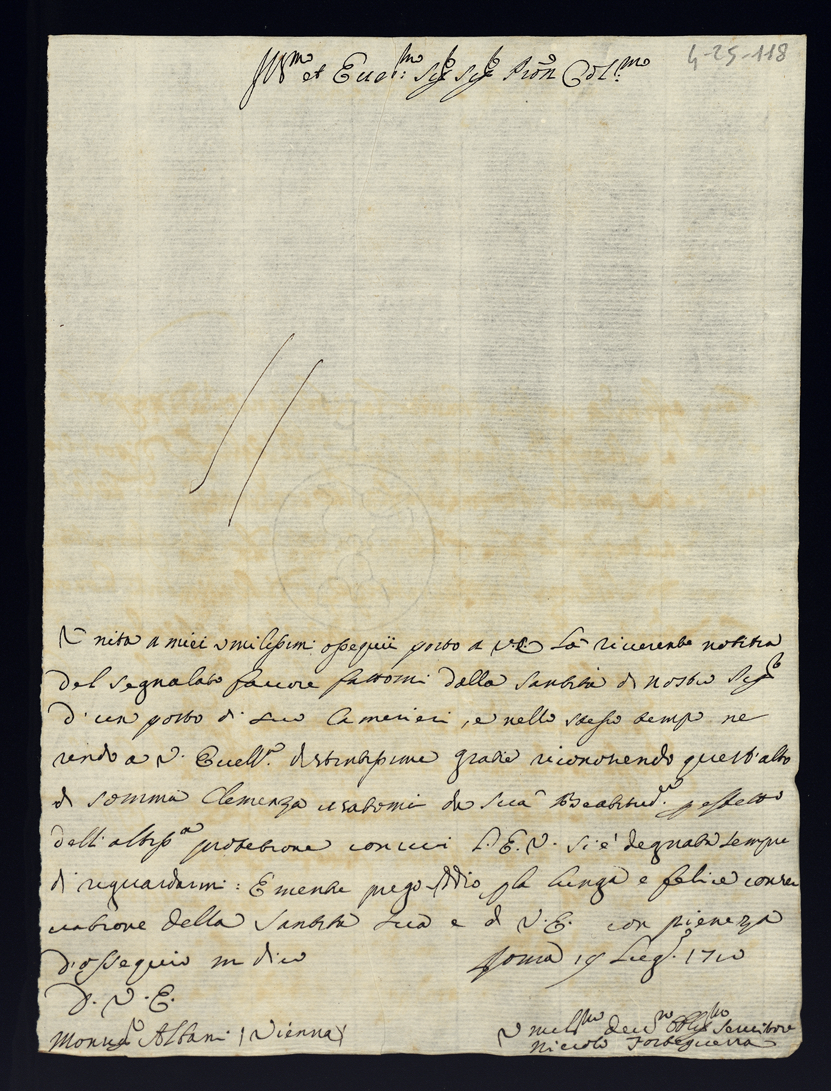 4-25-118
Ill.mo et Ecc.mo Sig.e Sig.e Pron Col.mo
Unita a miei umilissimi ossequii porto a V.E. La riverente notitia
del segnalato favore fattomi dalla Santità di nostro Sig.e
d'un posto di suo Cameriere, e nello stesso tempo ne
rendo a V. Eccell.a distintissime gratie riconoscendo quest'atto
di somma Clemenza usatomi da Sua Beatitud.e p effetto
dell'altiss.a protetione con cui L'E.V. si è degnata sempre
di riguardarmi: E mentre prego Iddio p la lunga e felice conser
vatione della Santità Sua e di V.E. con pienezza
d'ossequio mi dico
Roma 19 Lug.o 1710
D. V. E.
Mons.r Albani (Vienna)
Umil.mo Dev.mo Obl.mo Servitore
Niccolò Forteguerra